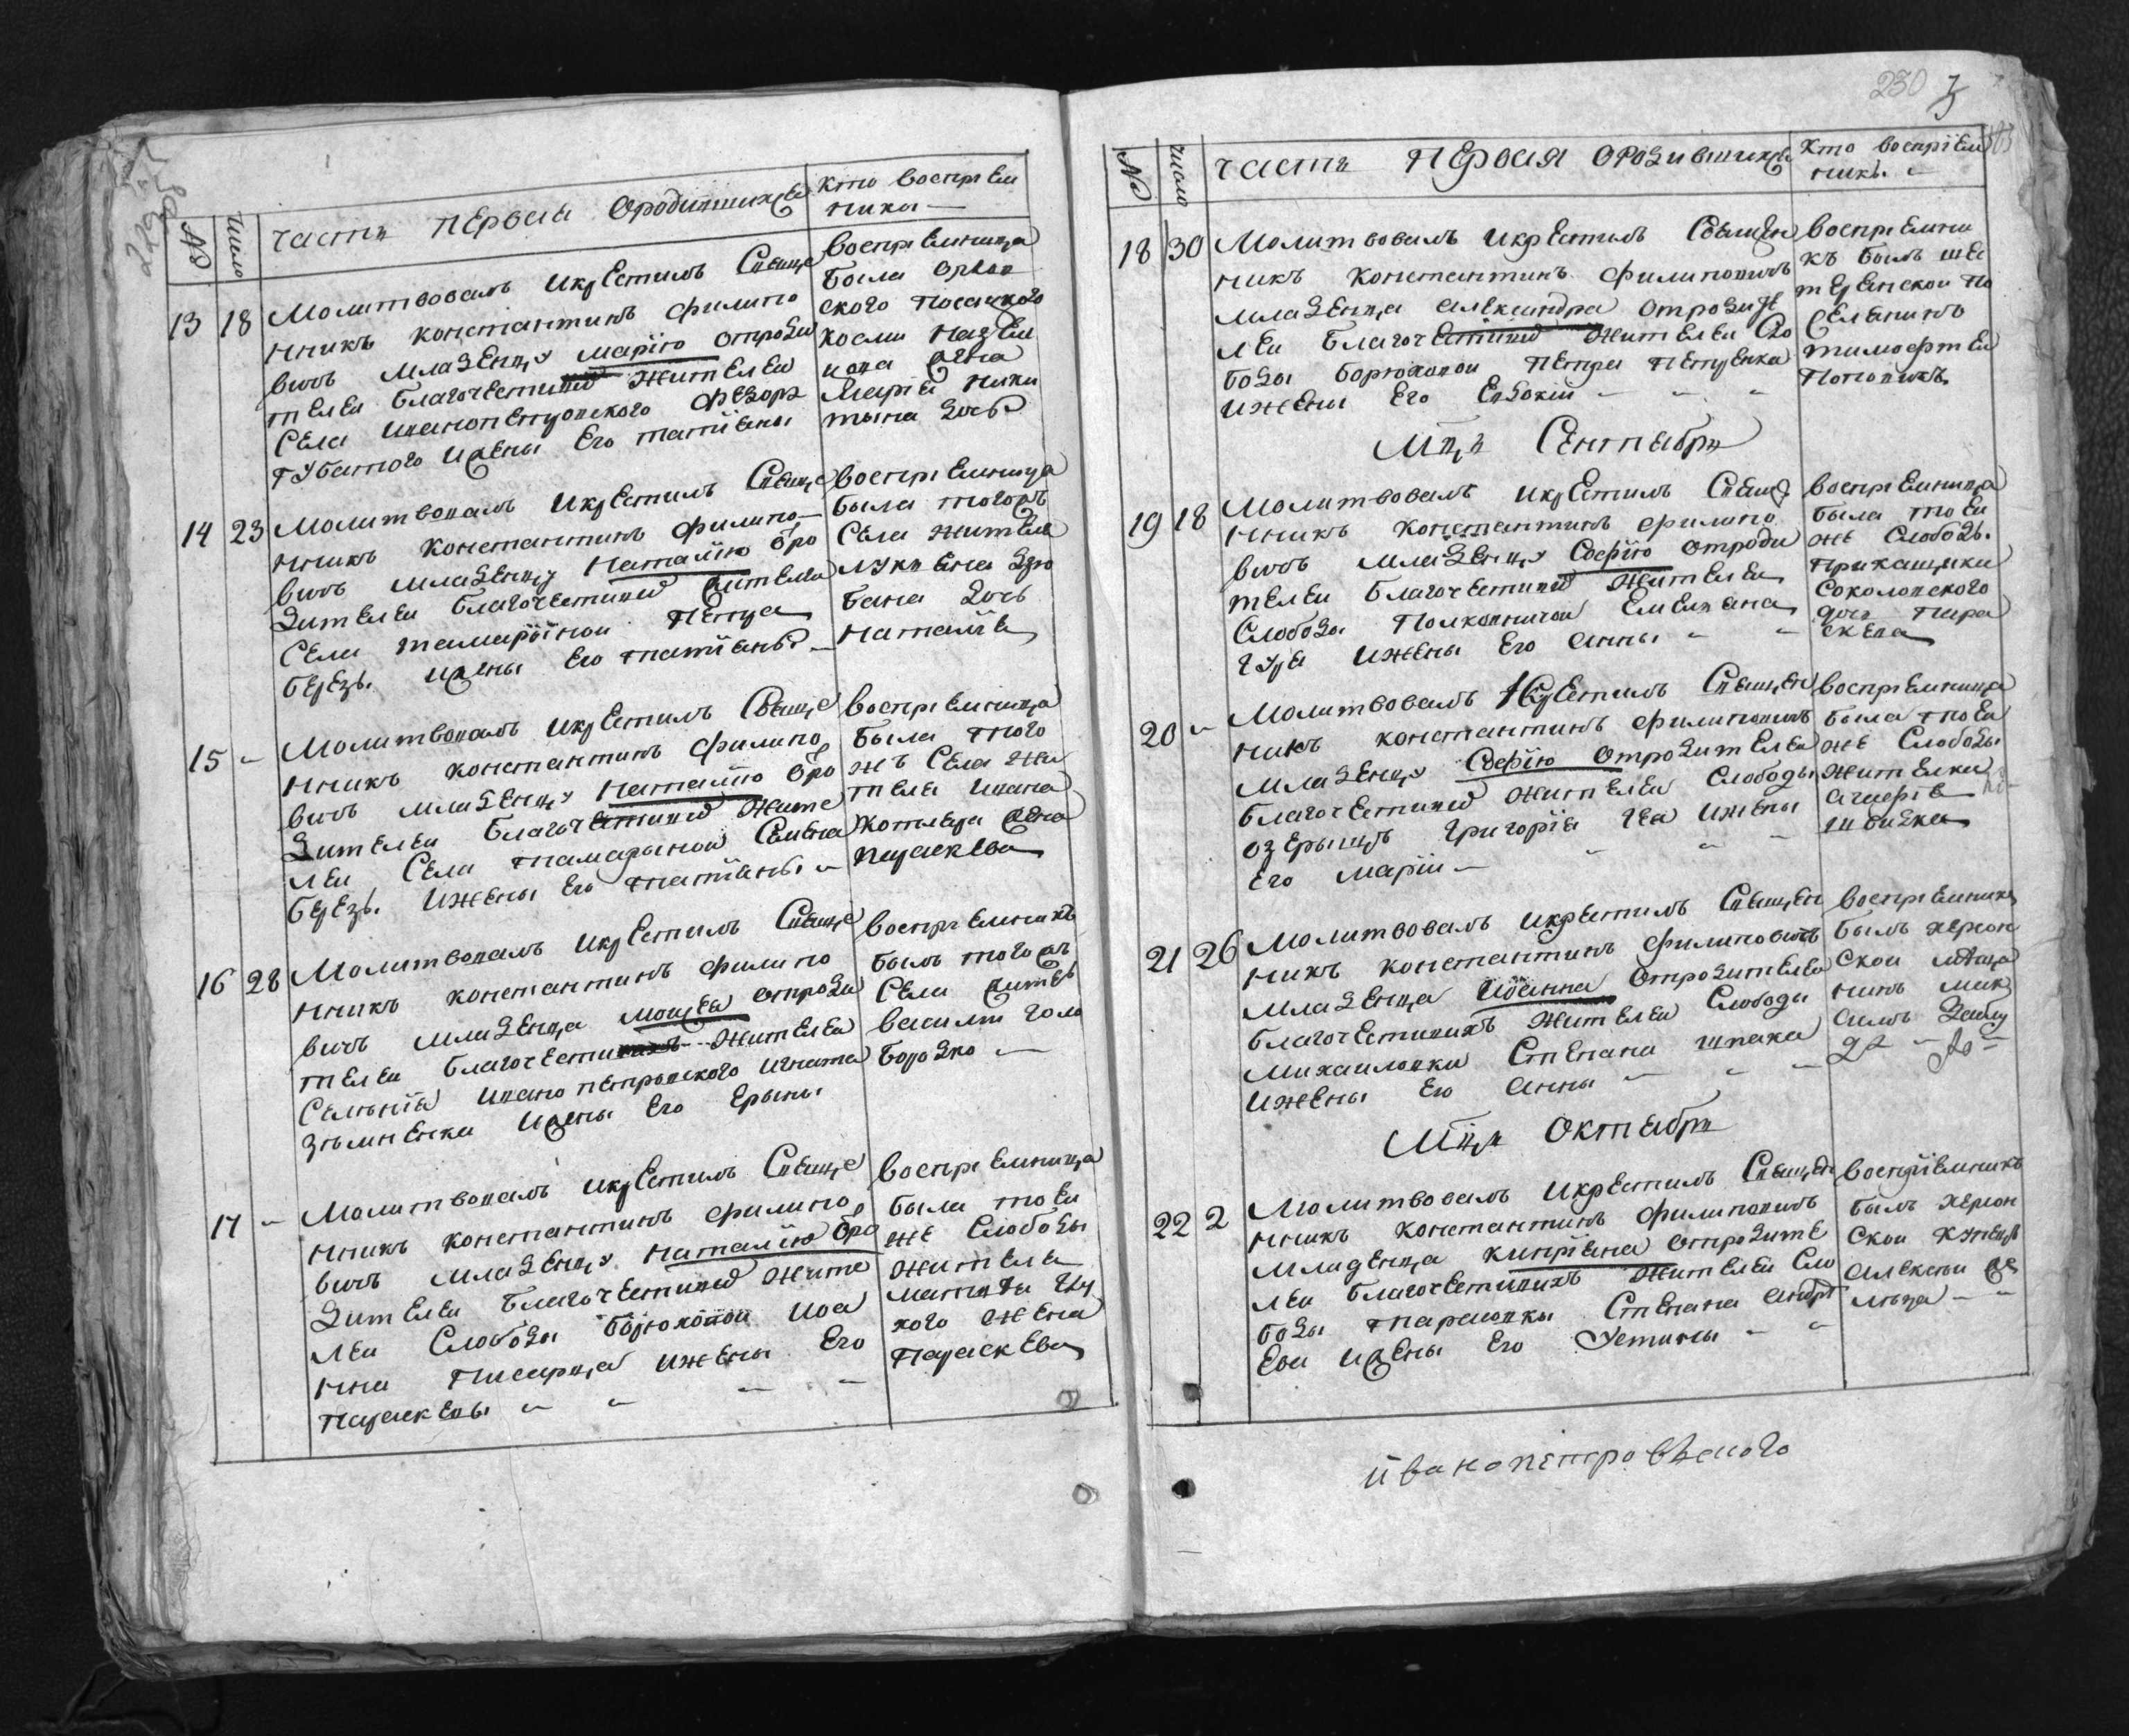 №
число
часть первая ородившихся
кто воспрiем
ника —
13 18
Молитвовалъ икрестилъ Свяще
нникъ константинъ филипо
вичъ младенцу марiю отроди
телей благочестивих жителей
Села иванопетровского федора
губатого ижены его татiяны
Воспрiемница
была
ского
марiя ники
тина дочь
14 23
Молитвовалъ икрестилъ Свяще
нникъ константинъ филипо—
вичъ младенцу наталiю ѿро
дителей благочестивих жителей
Села тамариной петра
березы ижены его татiяны —
воспрiемница
была тогожъ
Села жителя
лукияна
бана дочь
наталiя
15 —
Молитвовалъ икрестилъ Свяще
нникъ константинъ филипо
вичъ младенцу наталiю ѿро
дителей благочестивих жите
лей Села тамариной Семена
березы ижены его татiаны —
воспрiемница
была того
жъ Села жи
теля ивана
котляра жена
параскева
16 28
Молитвовалъ икрестилъ Свяще
нникъ константинъ филипо
вичъ младенца моисея отроди
телей благочестивихъ жителей
Селенiя иванопетровского игната
ижены его ерины
воспрiемникъ
былъ тогожъ
Села житель
василии голо
бородко —
17 —
Молитвовалъ икрестилъ Свяще
нникъ константинъ филипо
вичъ младенцу наталiю ѿро
дителей благочестивих жите
лей Слободы борюховой иоа
нна писарца ижены его
параскевы — — — —
воспрiемница
была той
же Слободы
жителя
матвея
кого жена
параскева
230
№
число
часть первая ородившихся
кто воспрiем
никъ —
18 30
Молитвовалъ икрестилъ Священ
никъ константинъ филиповичъ
младенца александра отродите
лей благочестивих жителей Сло
боды борюховой петра петренка
ижены его евдокiи — — —
воспрiемни
къ былъ
поселянинъ
тимофтей
поповичъ
Мця Сентября
19 18
Молитвовалъ икрестилъ Свяще
нникъ константинъ филипо
вичъ младенцу Софiю отроди
телей благочестивих жителей
Слободы полковничой емелияна
гуря ижены его анны — —
воспрiемница
была той
же Слободы
прикащика
Соколовского
дочь пара
скева
20 —
Молитвовалъ икрестилъ Священ
никъ константинъ филиповичъ
младенцу Софiю отродителей
благочестивих жителей Слободы
озерыщъ григорiя ижены
его марiи — — — —
воспрiемница
была той
же Слободы
жителка
агафiя
швидка
21 26
Молитвовалъ икрестилъ Священ
никъ константинъ филиповичъ
младенца иоанна отродителей
благочестивихъ жителей Слободы
михаиловки Степана шпака
ижены его анны — — —
воспрiемникъ
былъ херсон
скои меща
нинъ мак
симъ
Мця Октября
22 2
Молитвовалъ икрестилъ Священ
нникъ константинъ филиповичъ
младенца кипрiяна отродите
лей благочестивихъ жителей Сло
боды тарасовки Степана андре
ева ижены его устины — —
воспрiемникъ
былъ херсон
скои купецъ
алексеи
иванопетровского